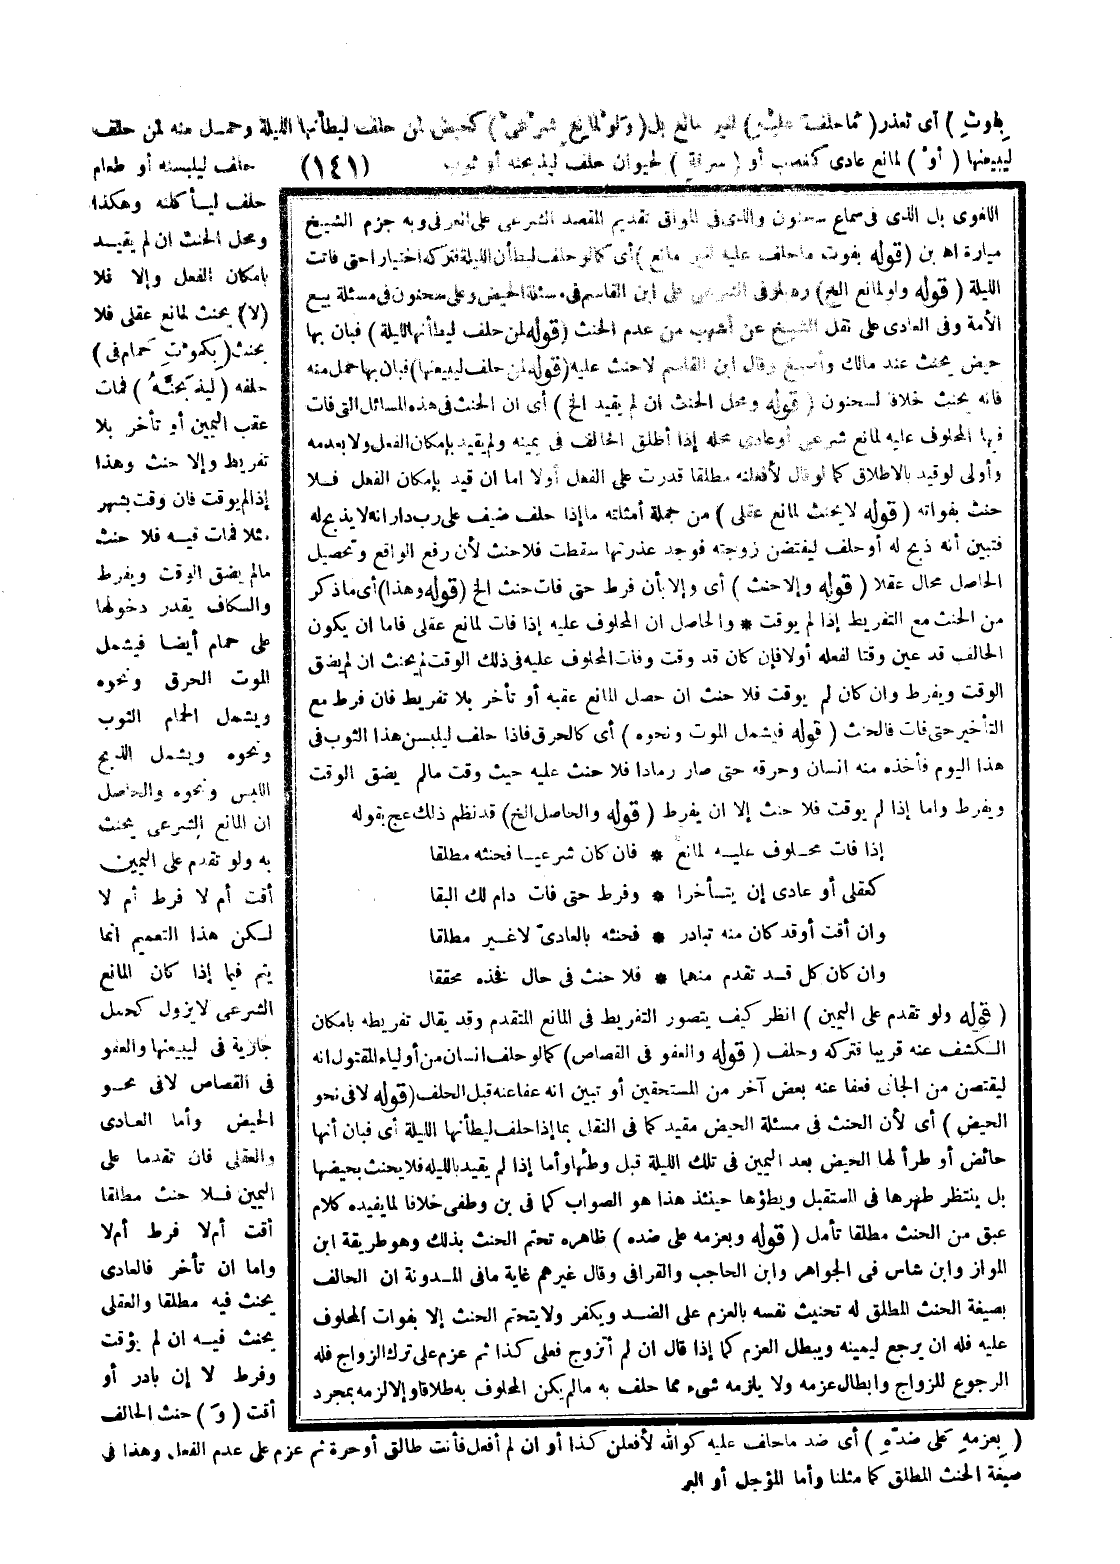 بفوت ) أى تعذر ( ماحلف عليه ) لغير مانع بل ( ولو لمانع شرعى ) كحيض لمن حلف ليطأنها الليلة وحمل منه لمن حلف
ليبيعنها ( أو ) لمانع عادى كغصب أو ( سرقة ) لحيوان حلف ليذبحنه أو ثوب
(١٤١)
حلف ليلبسنه أو طعام
حلف ليأكلنه وهكذا
ومحل الحنث ان لم يقيد
بامكان الفعل وإلا فلا
(لا) يحنث لمانع عقلى فلا
يحنث ( بكموت حمام فى )
حلفه ( ليذبحنه ) فمات
عقب اليمين أو تأخر بلا
تفريط وإلا حنث وهذا
إذا لم يوقت فان وقت بشهر
مثلا فمات فيه فلا حنث
مالم يضق الوقت ويفرط
والكاف يقدر دخولها
على حمام أيضا فيشمل
الموت الحرق ونحوه
ويشمل الحمام الثوب
ونحوه ويشمل الذبح
اللبس ونحوه والحاصل
ان المانع الشرعى يحنث
به ولو تقدم على اليمين
أقت أم لا فرط أم لا
لكن هذا التعميم انما
يتم فيما إذا كان المانع
الشرعى لايزول كحمل
جارية فى ليبيعنها والعفو
فى القصاص لافى نحو
الحيض وأما العادى
والعقلى فان تقدما على
اليمين فلا حنث مطلقا
أقت أم لا فرط أم لا
واما ان تأخر فالعادى
يحنث فيه مطلقا والعقلى
يحنث فيه ان لم يؤقت
وفرط لا إن بادر أو
أقت ( و ) حنث الحالف
( بعزمه على ضده ) أى ضد ماحلف عليه كوالله لأفعلن كذا أو ان لم أفعل فأنت طالق أو حرة ثم عزم على عدم الفعل وهذا فى
صيغة الحنث المطلق كما مثلنا وأما المؤجل أو البر
اللغوى بل الذى فى سماع سحنون والذى فى المواق تقديم المقصد الشرعى على العرفى وبه جزم الشيخ
ميارة اه بن ( قوله بفوت ماحلف عليه لغير مانع ) أى كما لو حلف ليطأن الليلة فتركه اختيارا حتى فاتت
الليلة ( قوله ولو لمانع الخ ) رد بلو فى الشرعى على ابن القاسم فى مسئلة الحيض وعلى سحنون فى مسئلة بيع
الأمة وفى العادى على نقل الشيخ عن أشهب من عدم الحنث ( قوله لمن حلف ليطأنها الليلة ) فبان بها
حيض يحنث عند مالك وأصبغ وقال ابن القاسم لاحنث عليه ( قوله لمن حلف ليبيعنها ) فبان بها حمل منه
فانه يحنث خلافا لسحنون ( قوله ومحل الحنث ان لم يقيد الخ ) أى ان الحنث فى هذه المسائل التى فات
فيها المحلوف عليه لمانع شرعى أو عادى محله إذا أطلق الحالف فى يمينه ولم يقيد بإمكان الفعل ولا بعدمه
وأولى لو قيد بالاطلاق كما لو قال لأفعلنه مطلقا قدرت على الفعل أولا اما ان قيد بإمكان الفعل فلا
حنث بفواته ( قوله لايحنث لمانع عقلى ) من جملة أمثلته ماإذا حلف ضيف على رب دار انه لايذبح له
فتبين أنه ذبح له أو حلف ليفتضن زوجته فوجد عذرتها سقطت فلاحنث لأن رفع الواقع وتحصيل
الحاصل محال عقلا ( قوله وإلا حنث ) أى وإلا بأن فرط حتى فات حنث الخ ( قوله وهذا ) أى ماذكر
من الحنث مع التفريط إذا لم يوقت * والحاصل ان المحلوف عليه إذا فات لمانع عقلى فاما ان يكون
الحالف قد عين وقتا لفعله أولا فإن كان قد وقت وفات المحلوف عليه فى ذلك الوقت لم يحنث ان لم يضق
الوقت ويفرط وان كان لم يوقت فلا حنث ان حصل المانع عقبه أو تأخر بلا تفريط فان فرط مع
التأخير حتى فات فالحنث ( قوله فيشمل الموت ونحوه ) أى كالحرق فاذا حلف ليلبسن هذا الثوب فى
هذا اليوم فأخذه منه انسان وحرقه حتى صار رمادا فلا حنث عليه حيث وقت مالم يضق الوقت
ويفرط واما إذا لم يوقت فلا حنث إلا ان يفرط ( قوله والحاصل الخ ) قد نظم ذلك عج بقوله
إذا فات محلوف عليه لمانع * فان كان شرعيا فحنثه مطلقا
كعقلى أو عادى إن يتأخرا * وفرط حتى فات دام لك البقا
وان أقت أو قد كان منه تبادر * فحنثه بالعادىّ لاغير مطلقا
وان كان كل قد تقدم منهما * فلا حنث فى حال فخذه محققا
( قوله ولو تقدم على اليمين ) انظر كيف يتصور التفريط فى المانع المتقدم وقد يقال تفريطه بامكان
الكشف عنه قريبا فتركه وحلف ( قوله والعفو فى القصاص ) كما لو حلف انسان من أولياء المقتول انه
ليقتصن من الجانى فعفا عنه بعض آخر من المستحقين أو تبين انه عفا عنه قبل الحلف ( قوله لافى نحو
الحيض ) أى لأن الحنث فى مسئلة الحيض مقيد كما فى النقل بما إذا حلف ليطأنها الليلة أى فبان أنها
حائض أو طرأ لها الحيض بعد اليمين فى تلك الليلة قبل وطئها وأما إذا لم يقيد بالليلة فلا يحنث بحيضها
بل ينتظر طهرها فى المستقبل ويطؤها حينئذ هذا هو الصواب كما فى بن وطفى خلافا لمايفيده كلام
عبق من الحنث مطلقا تأمل ( قوله وبعزمه على ضده ) ظاهره تحتم الحنث بذلك وهو طريقة ابن
المواز وابن شاس فى الجواهر وابن الحاجب والقرافى وقال غيرهم غاية مافى المدونة ان الحالف
بصيغة الحنث المطلق له تحنيث نفسه بالعزم على الضد ويكفر ولايتحتم الحنث إلا بفوات المحلوف
عليه فله ان يرجع ليمينه ويبطل العزم كما إذا قال ان لم أتزوج فعلى كذا ثم عزم على ترك الزواج فله
الرجوع للزواج وابطال عزمه ولا يلزمه شىء مما حلف به مالم يكن المحلوف به طلاقا وإلا لزمه بمجرد